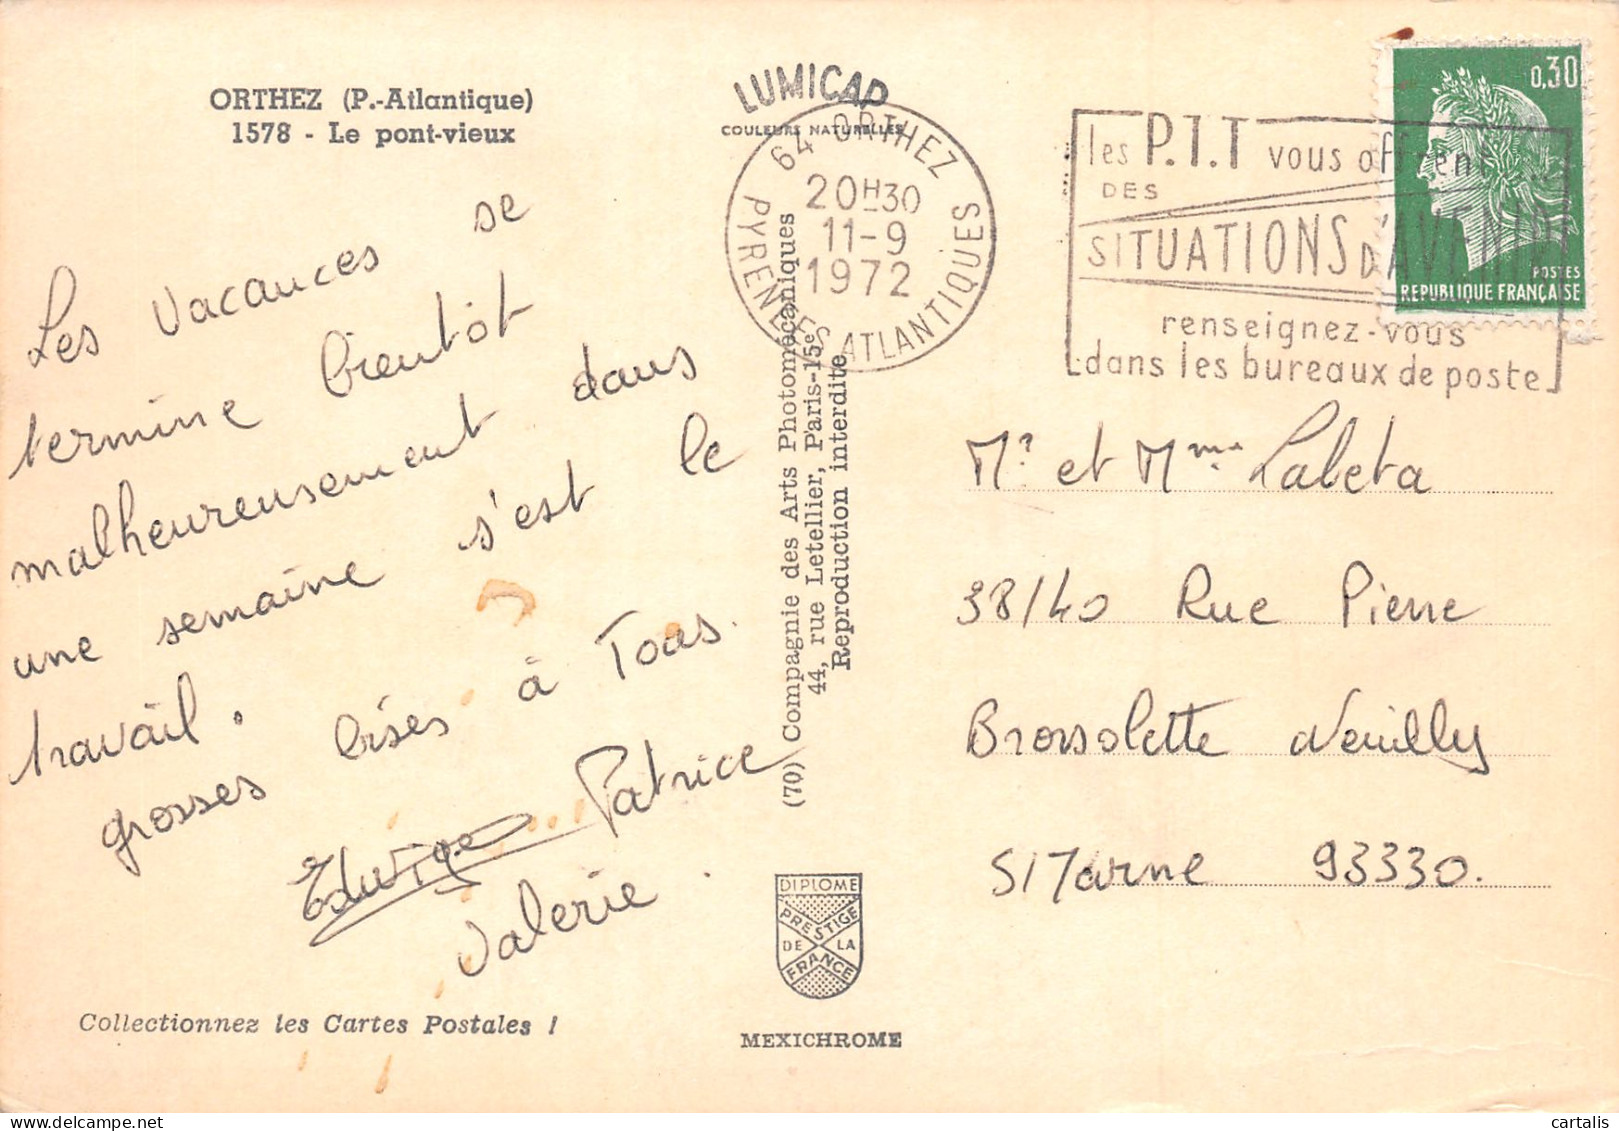 ORTHEZ (P.-Atlantique)
1578 - Le pont-vieux
Les vacances se
termine bientôt
malheureusement dans
une semaine s'est le
travail.
grosses bises à Tous.
Edwige Patrice
Valerie.
Collectionnez les Cartes Postales !
LUMICAP
COULEURS NATURELLES
64 ORTHEZ
20H30
11-9
1972
PYRENEES ATLANTIQUES
(70) Compagnie des Arts Photomécaniques
44, rue Letellier, Paris-15e
Reproduction interdite
DIPLOME
PRESTIGE
DE LA
FRANCE
MEXICHROME
les P.T.T vous offrent
DES
SITUATIONS D'AVENIR
renseignez-vous
dans les bureaux de poste
0,30
POSTES
REPUBLIQUE FRANÇAISE
Mr et Mme Labeta
38/40 Rue Pierre
Brossolette Neuilly
S/Marne 93330.
delcampe.net
cartalis